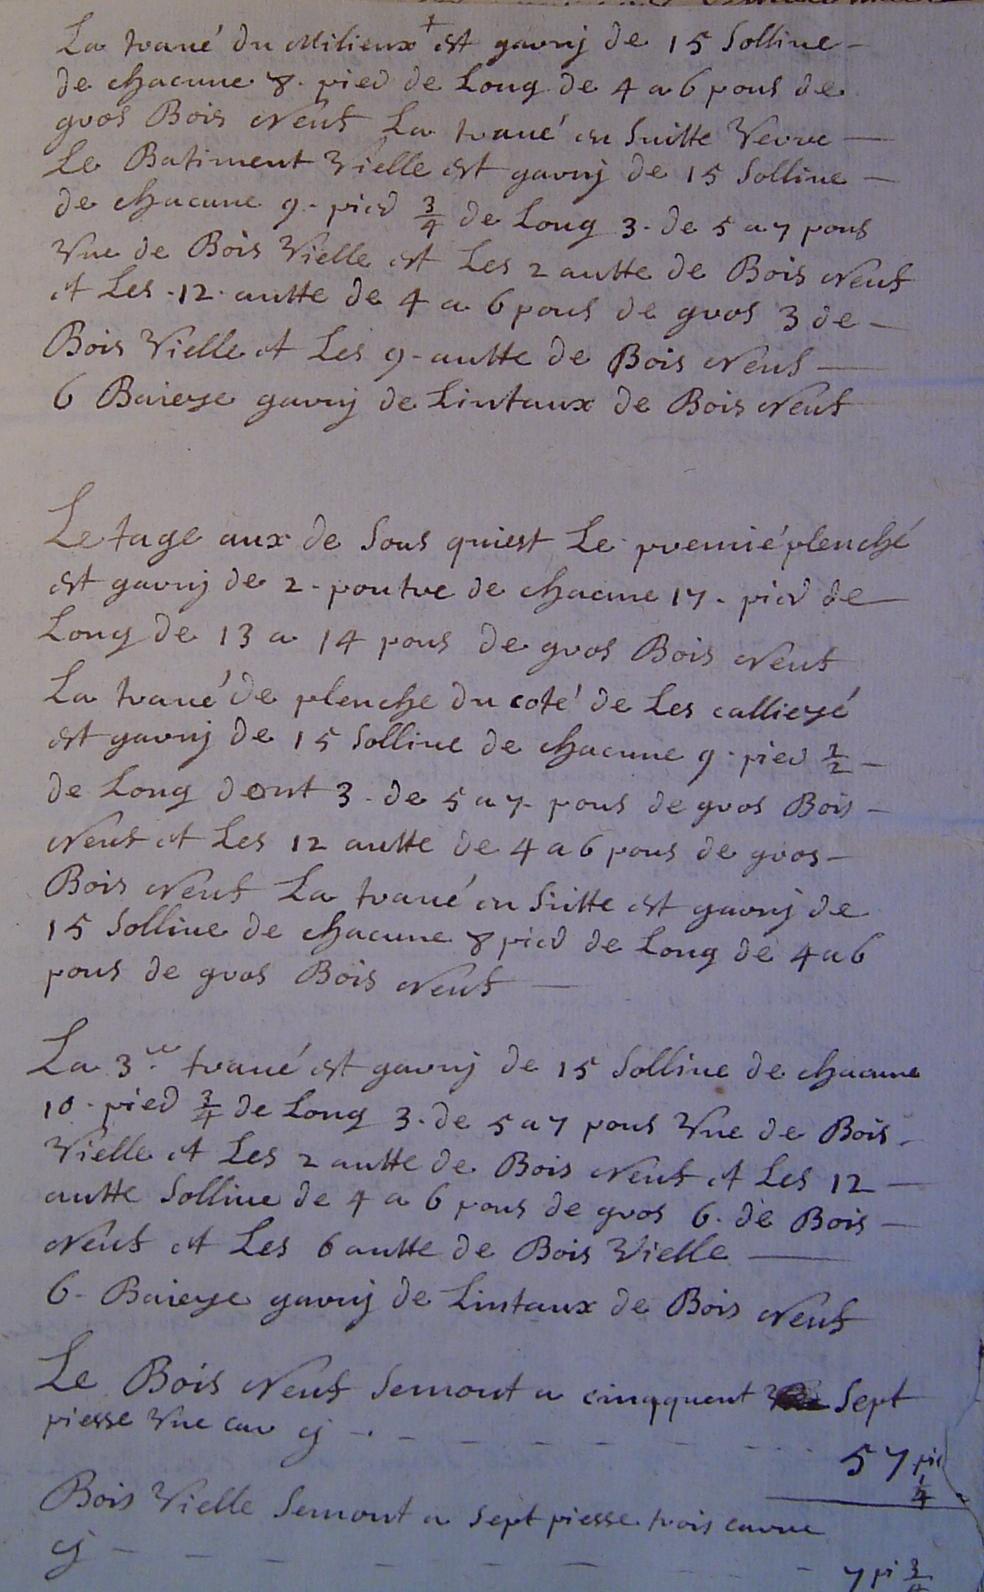 La traué du Milieux + est garnij de 15 Solliue -
de chacune 8. pied de Long de 4 a 6 pous de
gros Bois Neuf La traué en Suitte Verre -
Le Batiment Vielle est garnij de 15 Solliue -
de chacune 9 - pied 3/4 de Long 3 - de 5 a 7 pous
Vne de Bois Vielle et Les 2 autte de Bois Neuf
et Les - 12 - autte de 4 a 6 pous de gros 3 de -
Bois Vielle et Les 9 - autte de Bois Neuf -
6 Baieye garnij de Lintaux de Bois Neuf
Letage aux de Sous quiest Le premié plenché
est garnij de 2 - poutre de chacune 17 - pied de
Long de 13 a 14 pous de gros Bois Neuf
La traué de plenche du coté de Les callieyé
est garnij de 15 Solliue de chacune 9 - pied 1/2 -
de Long dont 3 - de 5 a 7 - pous de gros Bois -
Neuf et Les 12 autte de 4 a 6 pous de gros -
Bois Neuf La traué en Suitte est garnij de
15 Solliue de chacune 8 pied de Long de 4 a 6
pous de gros Bois Neuf -
La 3.e traué est garnij de 15 Solliue de chacune
10 - pied 3/4 de Long 3 - de 5 a 7 pous Vne de Bois -
Vielle et Les 2 autte de Bois Neuf et Les 12 -
autte Solliue de 4 a 6 pous de gros 6 - de Bois -
Neuf et Les 6 autte de Bois Vielle -
6 - Baieye garnij de Lintaux de Bois Neuf
Le Bois Neuf Semont a cinqquent Sept
piesse Vne car cy - - - - - - -
57 pie 1/4
Bois Vielle Semont a Sept piesse trois carre
cy - - - - - - - 7 pi 3/4